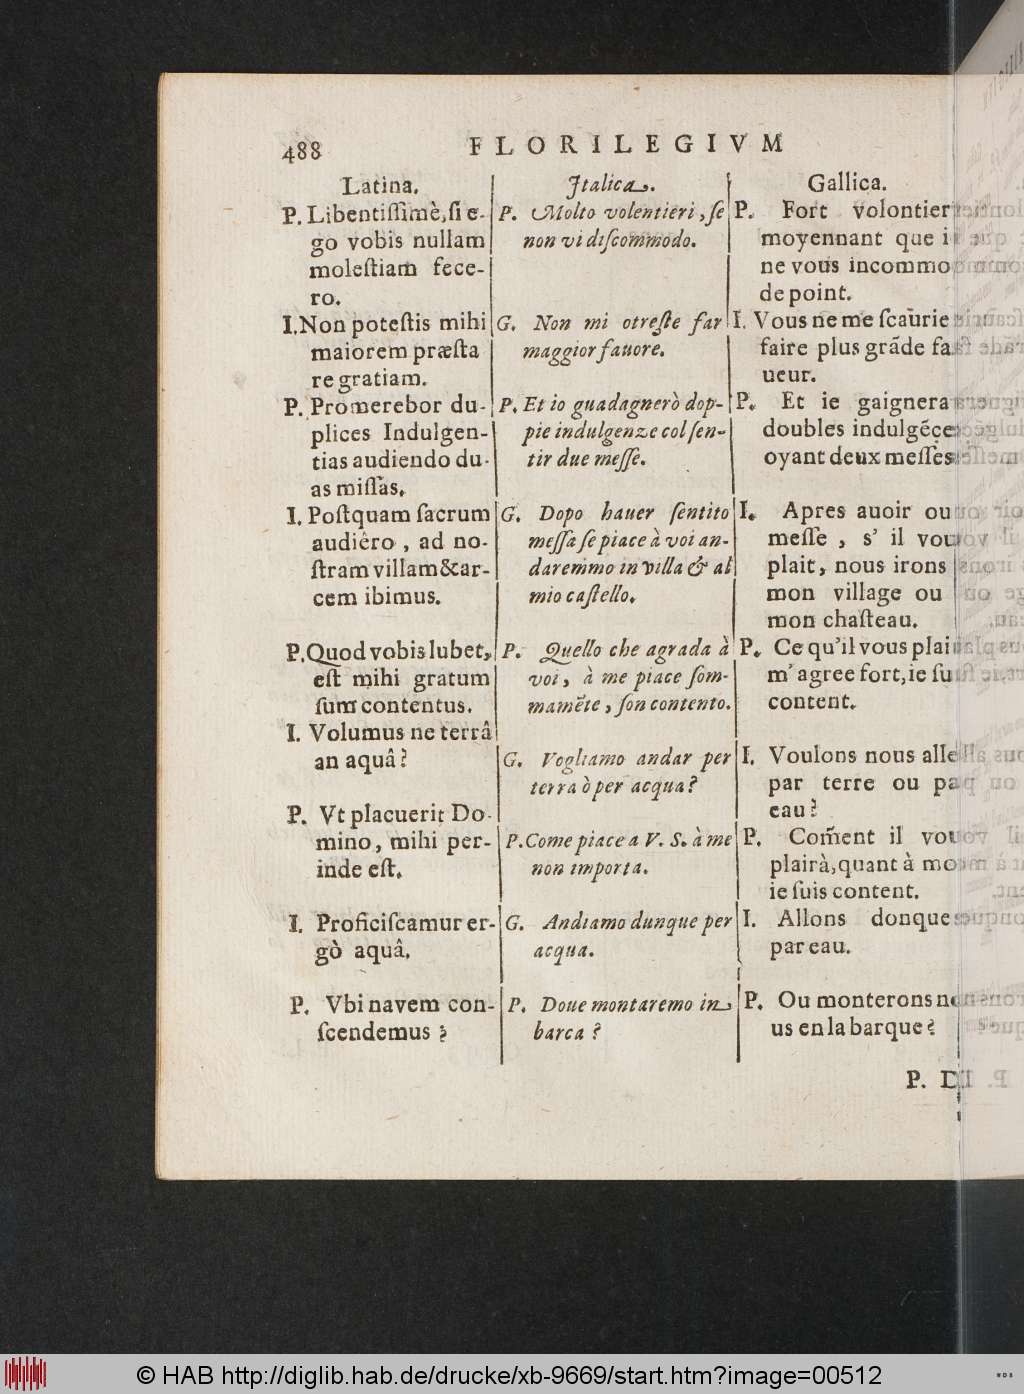 488 FLORILEGIVM
Latina.
P. Libentiſſimè, ſi e-
go vobis nullam
moleſtiam fece-
ro.
I. Non poteſtis mihi
maiorem præſta
re gratiam.
P. Promerebor du-
plices Indulgen-
tias audiendo du-
as miſſas.
I. Poſtquam ſacrum
audiêro, ad no-
ſtram villam & ar-
cem ibimus.
P. Quod vobis lubet,
eſt mihi gratum
ſum contentus.
I. Volumus ne terrâ
an aquâ?
P. Vt placuerit Do-
mino, mihi per-
inde eſt.
I. Proficiſcamur er-
gò aquâ.
P. Vbi navem con-
ſcendemus?
Italica.
P. Molto volentieri, ſe
non vi diſcommodo.
G. Non mi otreſte far
maggior fauore.
P. Et io guadagnerò dop-
pie indulgenze col ſen-
tir due meſſe.
G. Dopo hauer ſentito
meſſa ſe piace à voi an-
daremmo in villa & al
mio caſtello.
P. Quello che agrada à
voi, à me piace ſom-
mamẽte, ſon contento.
G. Vogliamo andar per
terra ò per acqua?
P. Come piace a V. S. à me
non importa.
G. Andiamo dunque per
acqua.
P. Doue montaremo in
barca?
Gallica.
P. Fort volontier
moyennant que
ne vous incommo
de point.
I. Vous ne me ſcaurie
faire plus grãde fa
ueur.
P. Et ie gaignera
doubles indulgẽce
oyant deux meſſes
I. Apres auoir ou
meſſe, s' il vou
plait, nous irons
mon village ou
mon chaſteau.
P. Ce qu'il vous plai
m' agree fort, ie ſu
content.
I. Voulons nous alle
par terre ou pa
eau?
P. Com̃ent il vou
plairà, quant à mo
ie ſuis content.
I. Allons donque
par eau.
P. Ou monterons no
us en la barque?
P. D
© HAB http://diglib.hab.de/drucke/xb-9669/start.htm?image=00512